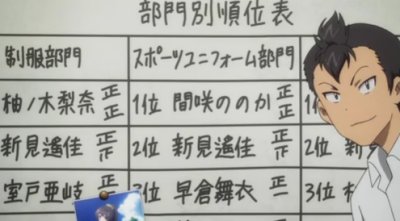 部門別順位表
制服部門 スポーツユニフォーム部門
柚ノ木梨奈 正正 1位 間咲ののか 正 1
新見遙佳 正一 2位 新見遙佳 正 2位
室戸亜岐 正 3位 早倉舞衣 3位